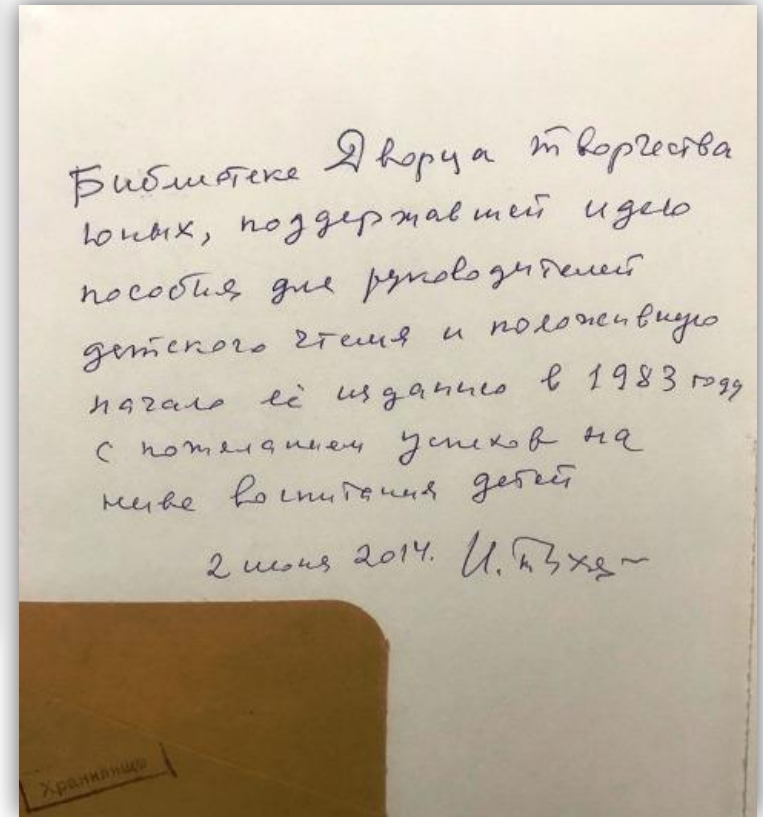 Библиотеке Дворца творчества
юных, поддержавшей идею
пособия для руководителей
детского чтения и положившую
начало её изданию в 1983 году
с пожеланием успехов на
ниве воспитания детей
2 июня 2014. И.
Хранилище